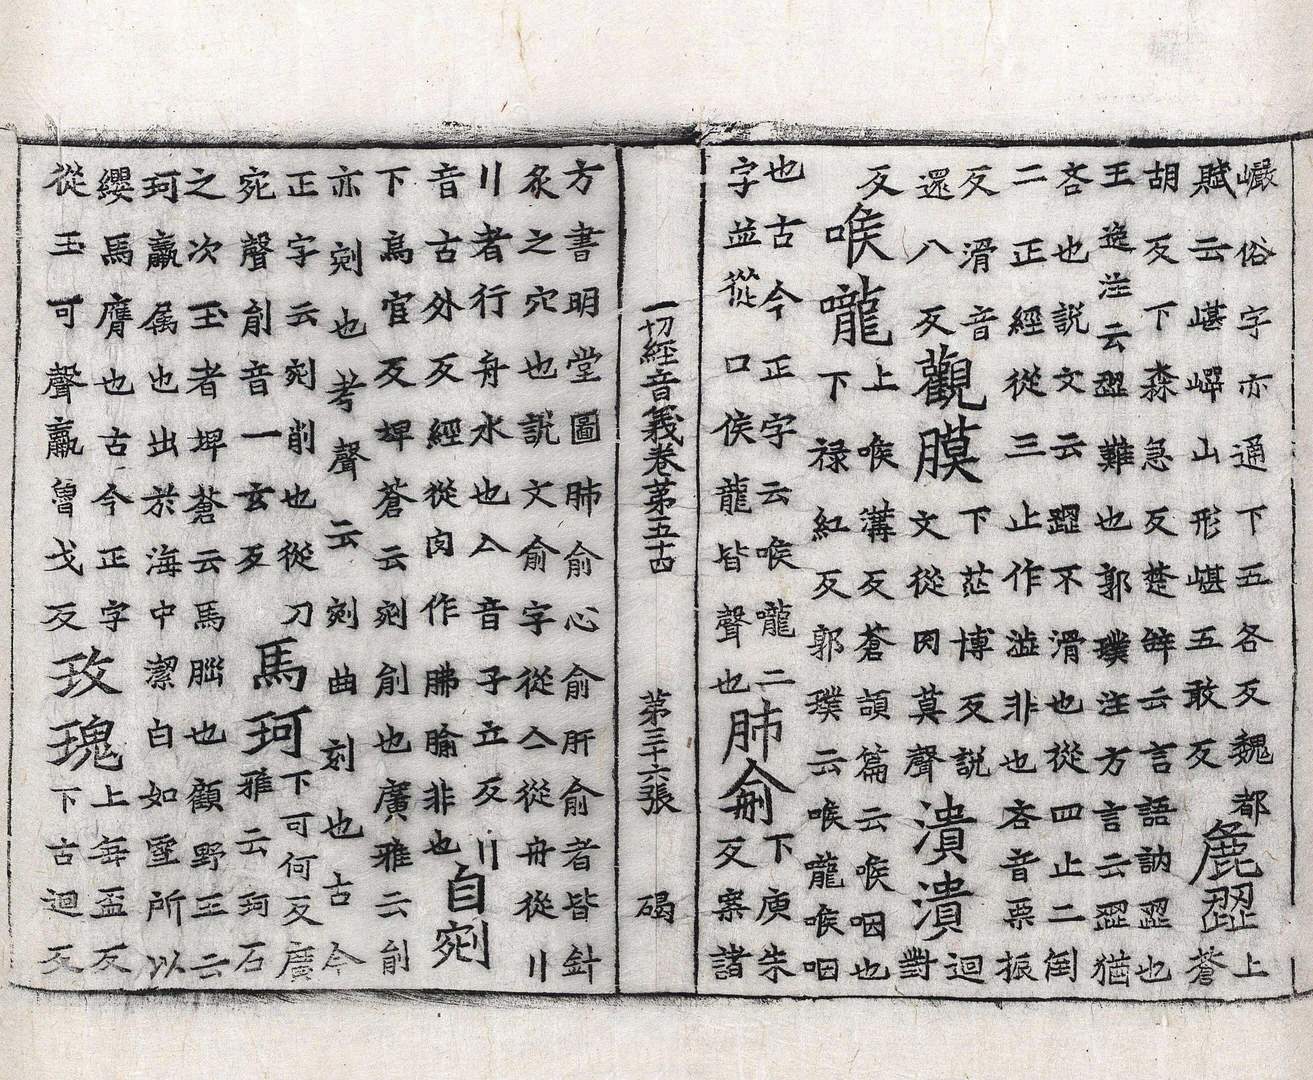 巗俗字亦通下五各反魏都
賦云嵁㠋山形嵁五敢反
麁歰
上
蒼
胡反下森急反楚辭云言語訥澀也
王逸注云澀難也郭璞注方言云澀猶
吝也説文云澀不滑也從四止二倒
二正經從三止作澁非也吝音栗振
反滑音
還八反
觀膜
下茫博反説
文從肉莫聲
潰潰
迴
對
反
喉嚨
上喉溝反蒼頡篇云喉咽也
下禄紅反郭璞云喉嚨喉咽
也古今正字云喉嚨二
字並從口侯龍皆聲也
肺俞
下庾朱
反案諸
一切經音義卷第五十四 第三十六張 碣
方書明堂圖肺俞心俞肝俞者皆針
灸之穴也説文俞字從亼從舟從刂
刂者行舟水也亼音子立反刂
音古外反經從肉作胏腧非也
自剜
下烏官反埤蒼云剜削也廣雅云削
亦剜也考聲云剜曲刻也古今
正字云剜削也從刀
宛聲削音一玄反
馬珂
下可何反廣
雅云珂石
之次玉者埤蒼云馬䐉也顧野王云
珂蠃属也出於海中潔白如雪所以
纓馬膺也古今正字
從玉可聲蠃曾戈反
玫瑰
上每盃反
下古迴反